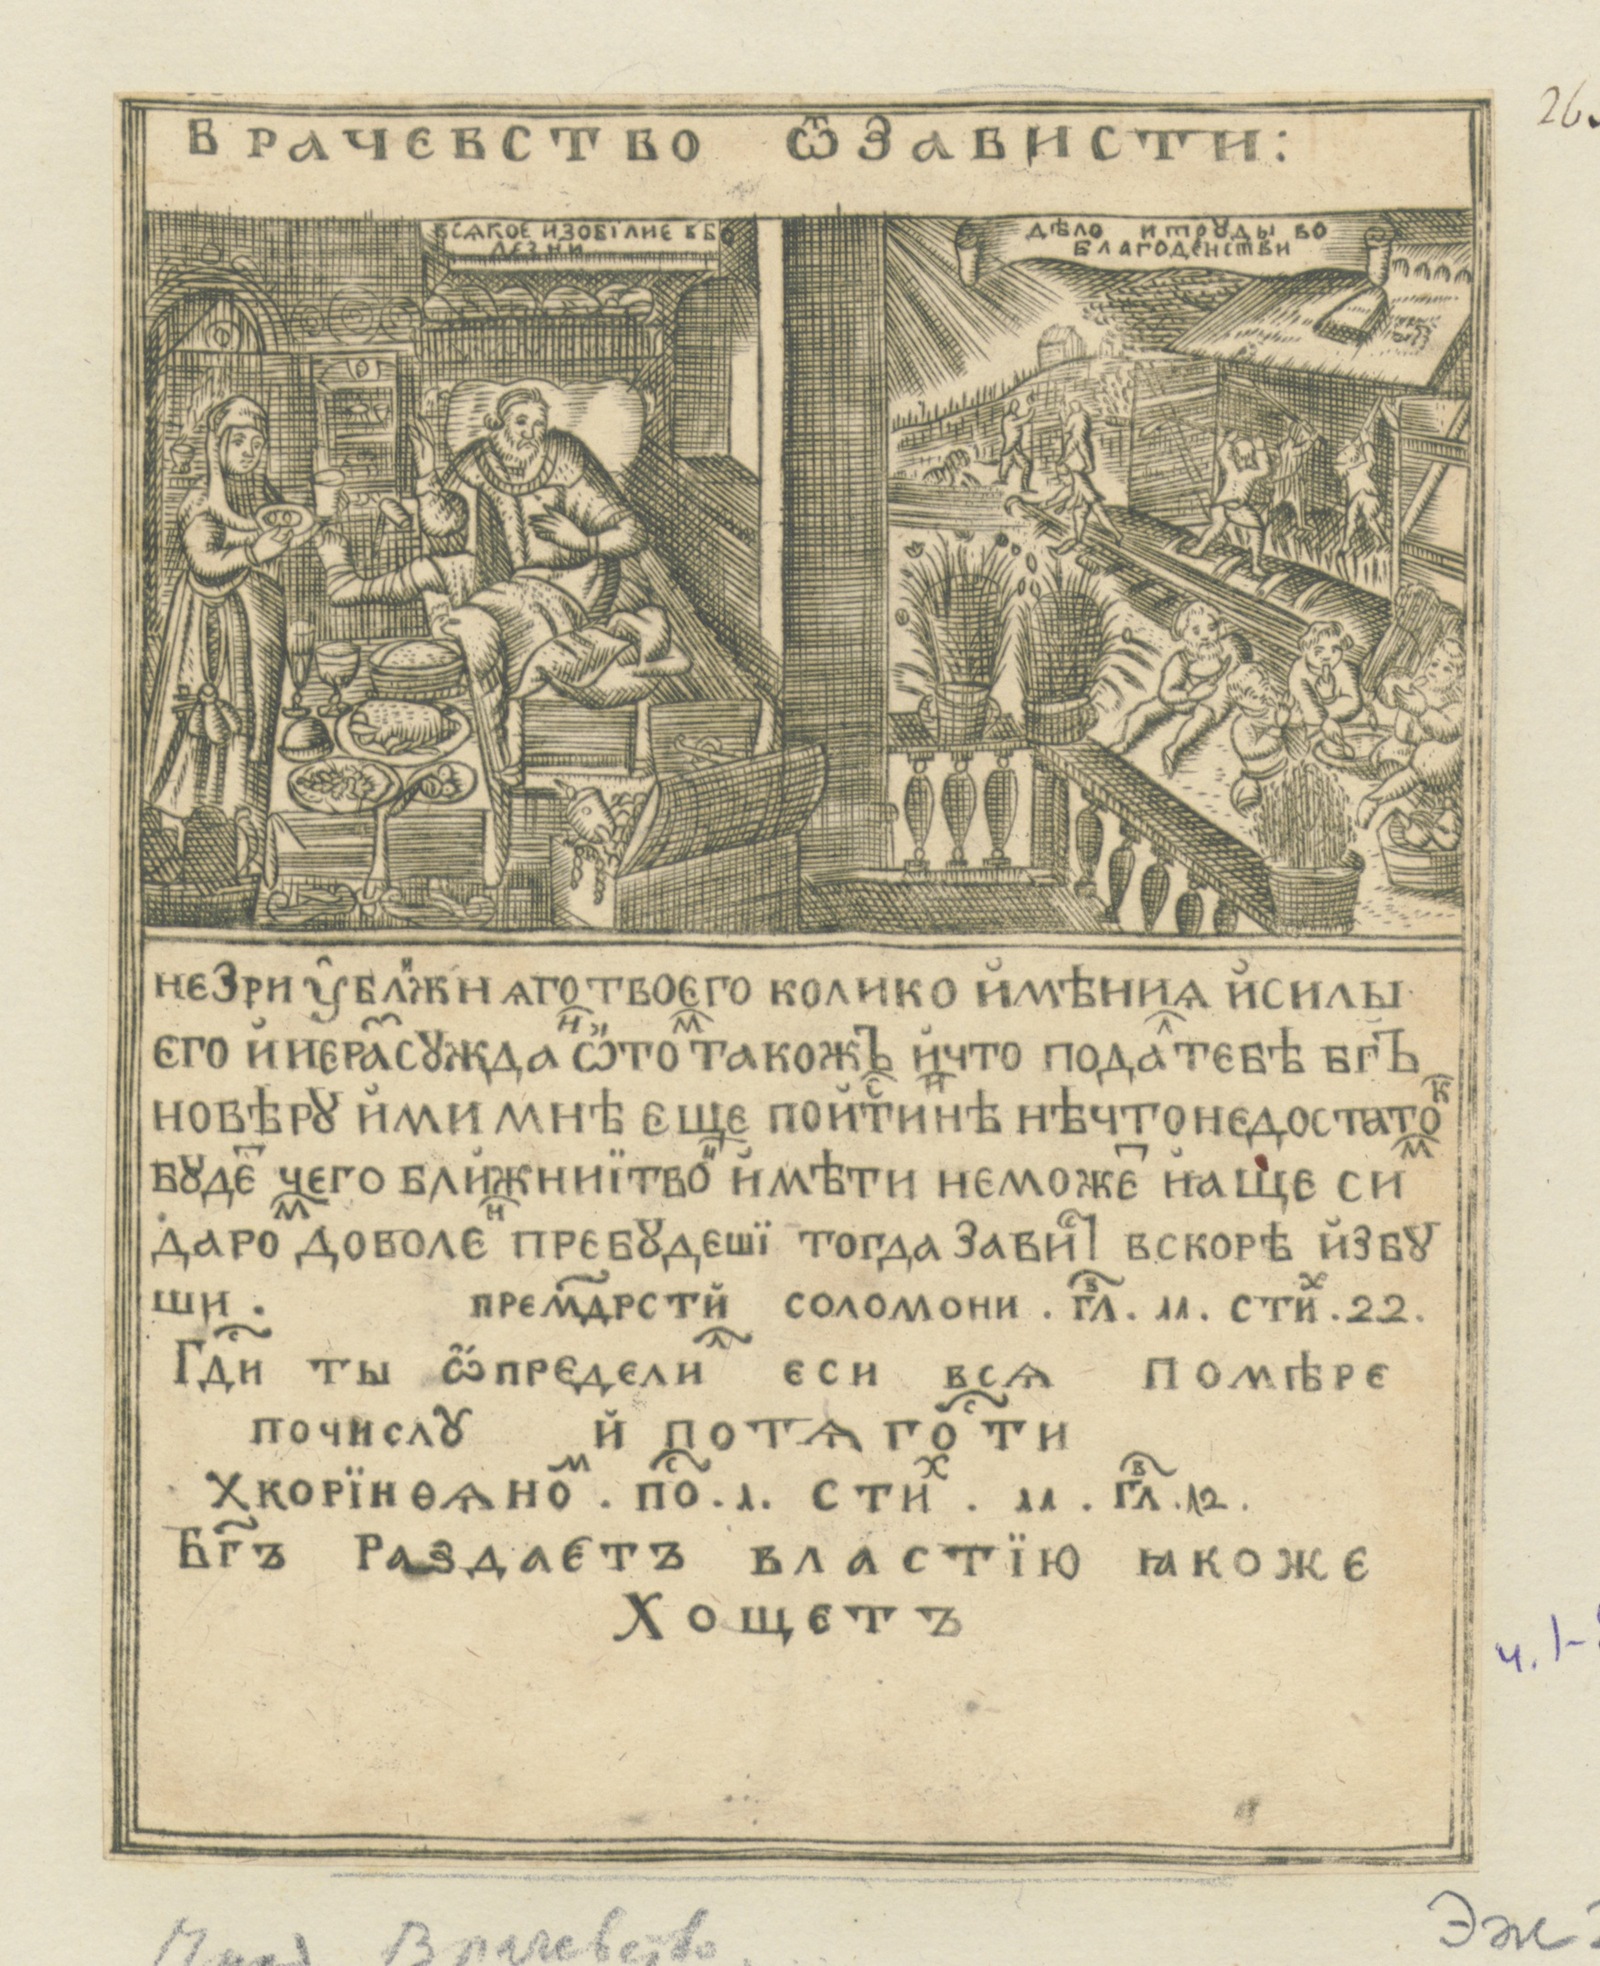 ВРАЧЕВСТВО ѾЗАВИСТИ:
26.
ВСѦКОЕ ИЗОБІЛИЕ ВБО
ЛЕЗНИ
ДѢЛО ИТРꙊДЫ ВО
БЛАГОДЕНСТВИ
НЕЗРИ ꙋ҆БЛИЖНѦГО ТВОЕГО КОЛИКО И҆МѢНИѦ И҆СИЛЫ
ЕГО И҆НЕРАⷭ҇СꙊЖДАⷩ҇ Ѡ҆ТОⷨ҇ ТАКОЖЪ И҆ЧТО ПОДАⷧ҇ ТЕБѢ БГ҃Ъ
НОВѢРꙊ И҆МИ МНѢ ЕЩЕ ПОИ҆ⷭ҇ТИⷩ҇НѢ НѢЧТОНЕДОСТАТОⷦ҇
БꙊДЕⷮ ЧЕГО БЛИЖНИЇТВОⷤи И҆МѢТИ НЕМОЖЕⷮ И҆АЩЕ СИⷨ҇
ДАРОⷨ҇ ДОВОЛЕⷩ҇ ПРЕБꙊДЕШЇ ТОГДА ЗАВИⷭ҇Т ВСКОРѢ И҆ЗБꙊ
ШИ. ПРЕМ҃ДРСТИ҆ СОЛОМОНИ. Гⷡ҇Л. 11. СТИⷯ. 22.
Гⷭ҇ДИ ТЫ Ѡ҆ПРЕДЕЛИⷧ҇ ЕСИ ВСѦ ПОМѢРЕ
ПОЧИСЛꙊ И҆ ПОТѦГОⷭ҇ТИ
ХКОРЇНѲѦНОⷨ. ПОⷭ҇. 1. СТИⷯ. 11. Гⷡ҇Л. 12.
БГ҃Ъ РАЗДАЕТЪ ВЛАСТЇЮ ꙖКОЖЕ
ХОЩЕТЪ
ч. 1-
Врачевство
Эж